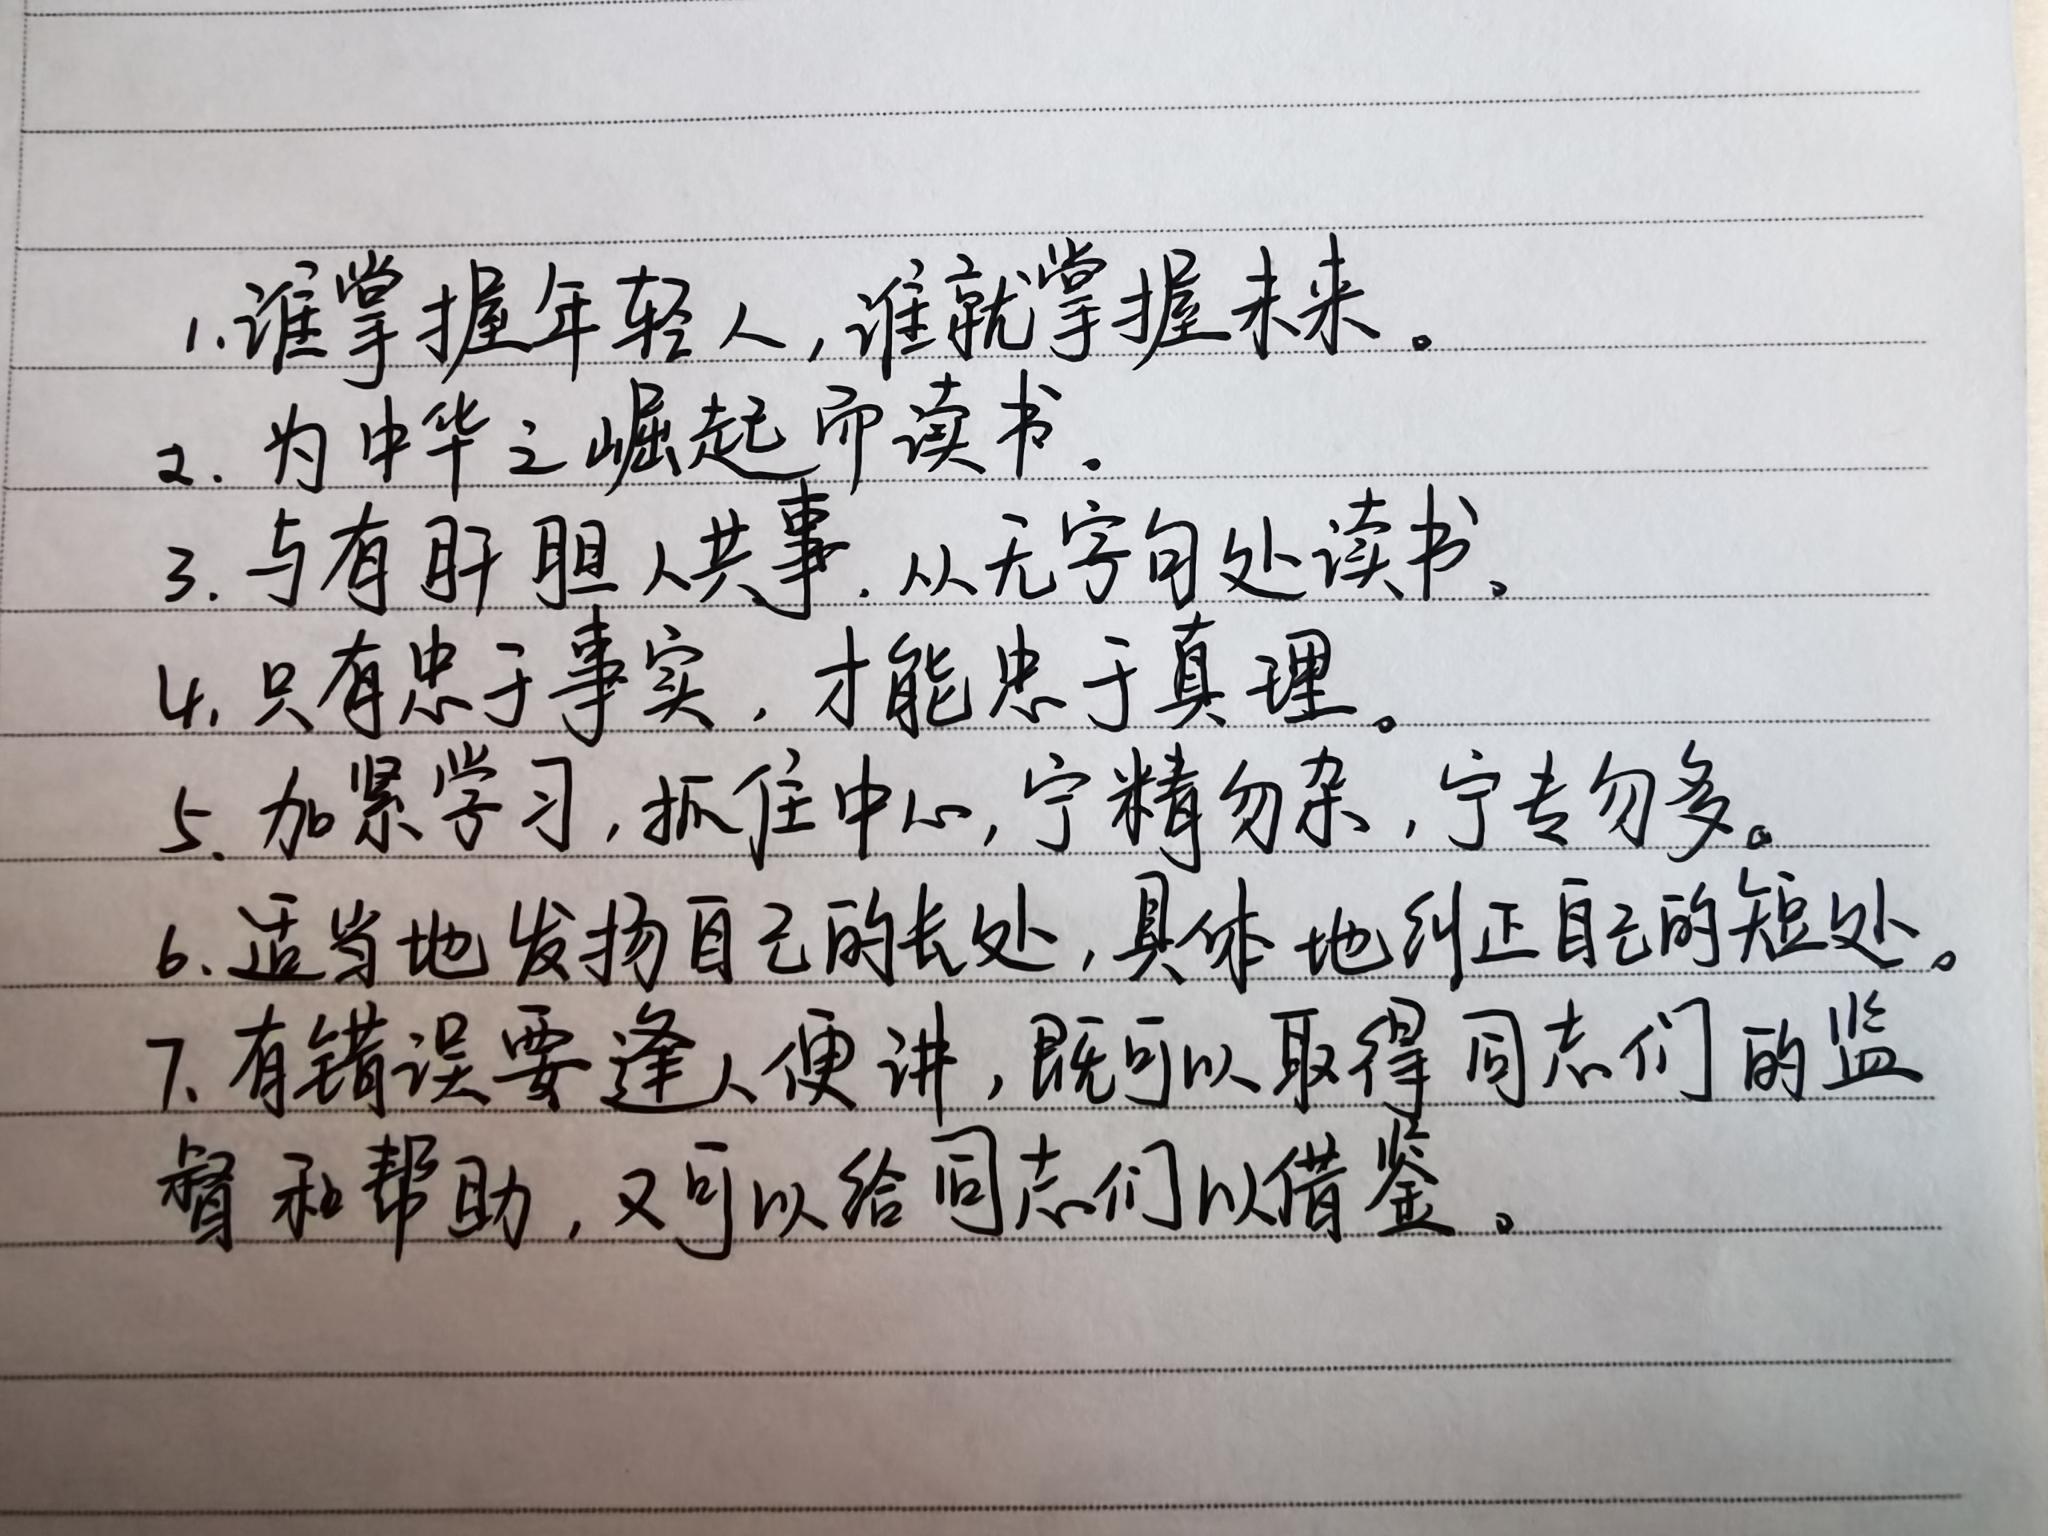 1.谁掌握年轻人,谁就掌握未来。
2.为中华之崛起而读书.
3.与有肝胆人共事.从无字句处读书。
4.只有忠于事实,才能忠于真理。
5.加紧学习,抓住中心,宁精勿杂,宁专勿多。
6.适当地发扬自己的长处,具体地纠正自己的短处。
7.有错误要逢人便讲,既可以取得同志们的监
督和帮助,又可以给同志们以借鉴。